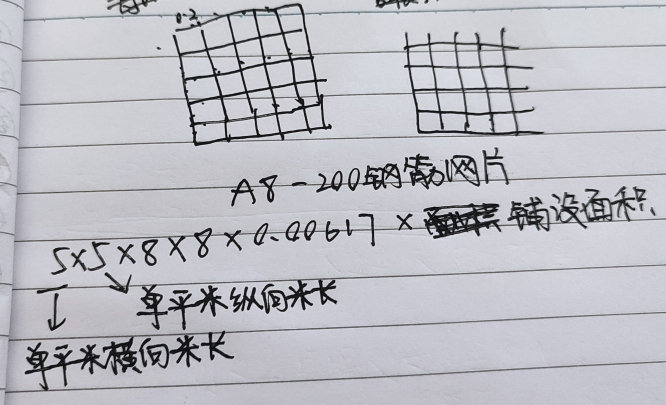 0.2
A8-200钢筋网片
5×5×8×8×0.00617×铺设面积
单平米纵向米长
单平米横向米长